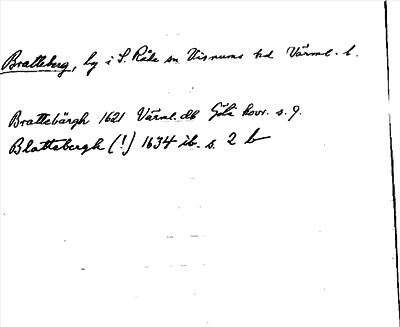 Bratteberg, by i S. Råda sn Visnums hd Värml. l.
Brattebärgh 1621 Värml. db Göta hovr. s. 9.
Blattebergh (!) 1634 ib. s. 2 b